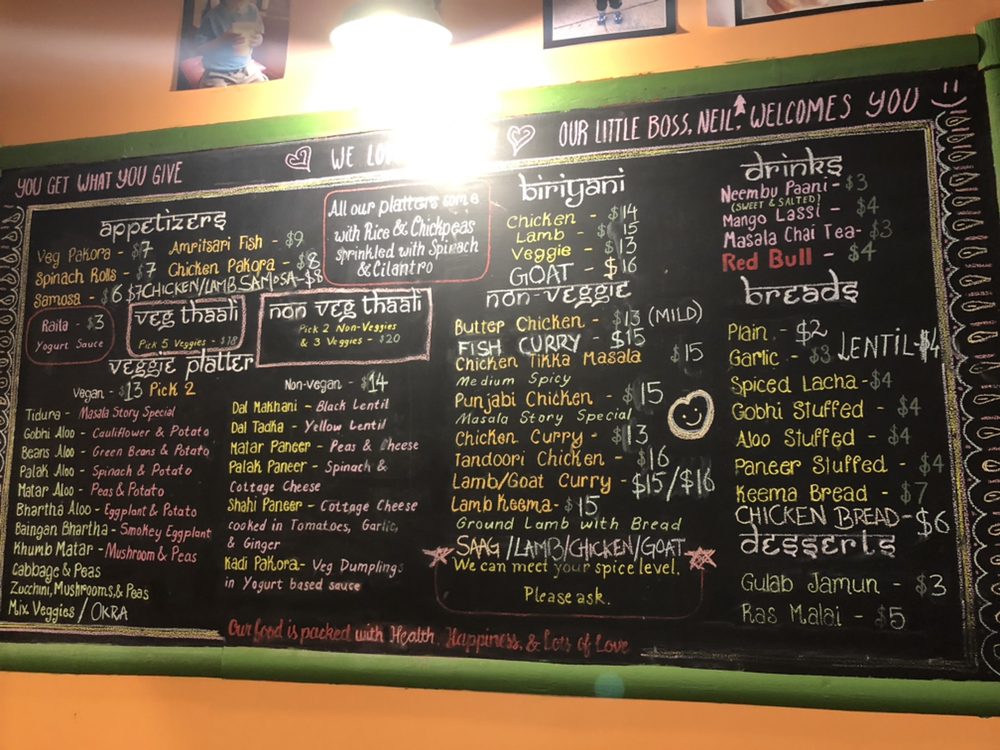 YOU GET WHAT YOU GIVE
WE
OUR LITTLE BOSS, NEIL, WELCOMES YOU
appetizers
Veg Pakora - $7 Amritsari Fish - $9
Spinach Rolls - $7 Chicken Pakora - $8
Samosa - $6 $7 CHICKEN/LAMB SAMOSA - $8
Raita - $3
Yogurt Sauce
veg thaali
Pick 5 Veggies - $18
non veg thaali
Pick 2 Non-Veggies
& 3 Veggies - $20
All our platters come
with Rice & Chickpeas
sprinkled with Spinach
& Cilantro
veggie platter
Vegan - $13 Pick 2
Tidura - Masala Story Special
Gobhi Aloo - Cauliflower & Potato
Beans Aloo - Green Beans & Potato
Palak Aloo - Spinach & Potato
Matar Aloo - Peas & Potato
Bhartha Aloo - Eggplant & Potato
Baingan Bhartha - Smokey Eggplant
Khumb Matar - Mushroom & Peas
Cabbage & Peas
Zucchini, Mushrooms, & Peas
Mix Veggies / OKRA
Non-vegan - $14
Dal Makhani - Black Lentil
Dal Tadka - Yellow Lentil
Matar Paneer - Peas & Cheese
Palak Paneer - Spinach &
Cottage Cheese
Shahi Paneer - Cottage Cheese
cooked in Tomatoes, Garlic,
& Ginger
Kadi Pakora - Veg Dumplings
in Yogurt based sauce
biriyani
Chicken - $14
Lamb - $15
Veggie - $13
GOAT - $16
non-veggie
Butter Chicken - $13 (MILD)
FISH CURRY - $15
Chicken Tikka Masala $15
Medium Spicy
Punjabi Chicken - $15
Masala Story Special
Chicken Curry - $13
Tandoori Chicken - $16
Lamb/Goat Curry - $15/$16
Lamb Keema - $15
Ground Lamb with Bread
SAAG/LAMB/CHICKEN/GOAT
We can meet your spice level.
Please ask.
drinks
Neembu Paani - $3
(SWEET & SALTED)
Mango Lassi - $4
Masala Chai Tea - $3
Red Bull - $4
breads
Plain - $2
Garlic - $3 LENTIL - $4
Spiced Lacha - $4
Gobhi Stuffed - $4
Aloo Stuffed - $4
Paneer Stuffed - $4
Keema Bread - $7
CHICKEN BREAD - $6
desserts
Gulab Jamun - $3
Ras Malai - $5
Our food is packed with Health, Happiness, & Lots of Love